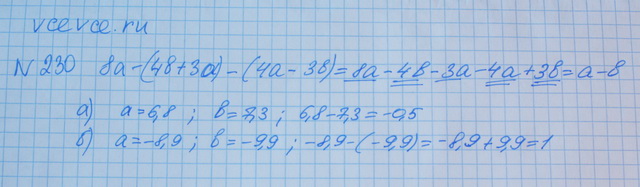 vcevce.ru
N 230 8a-(4в+3a)-(4a-3в)=8a-4в-3a-4a+3в=a-в
а) a=6,8 ; в=7,3 ; 6,8-7,3=-0,5
б) a=-8,9 ; в=-9,9 ; -8,9-(-9,9)=-8,9+9,9=1